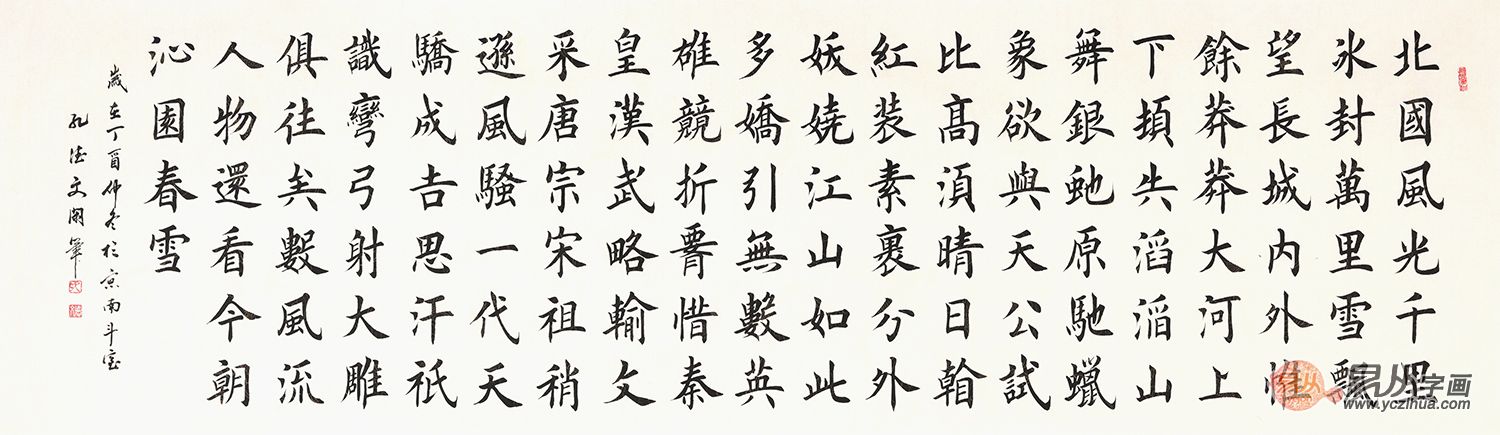 北國風光千里
冰封萬里雪飄
望長城內外惟
餘莽莽大河上
下頓失滔滔山
舞銀虵原馳蠟
象欲與天公試
比高須晴日
紅裝素裹分外
妖嬈江山如此
多嬌引無數英
雄競折惜秦
皇漢武略輸文
采唐宗宋祖稍
遜風騷一代天
驕成吉思汗祇
識彎弓射大雕
俱往矣數風流
人物還看今朝
沁園春雪
歲在丁酉仲冬於京南斗室
孔德文筆
易从字画
www.yczihua.com